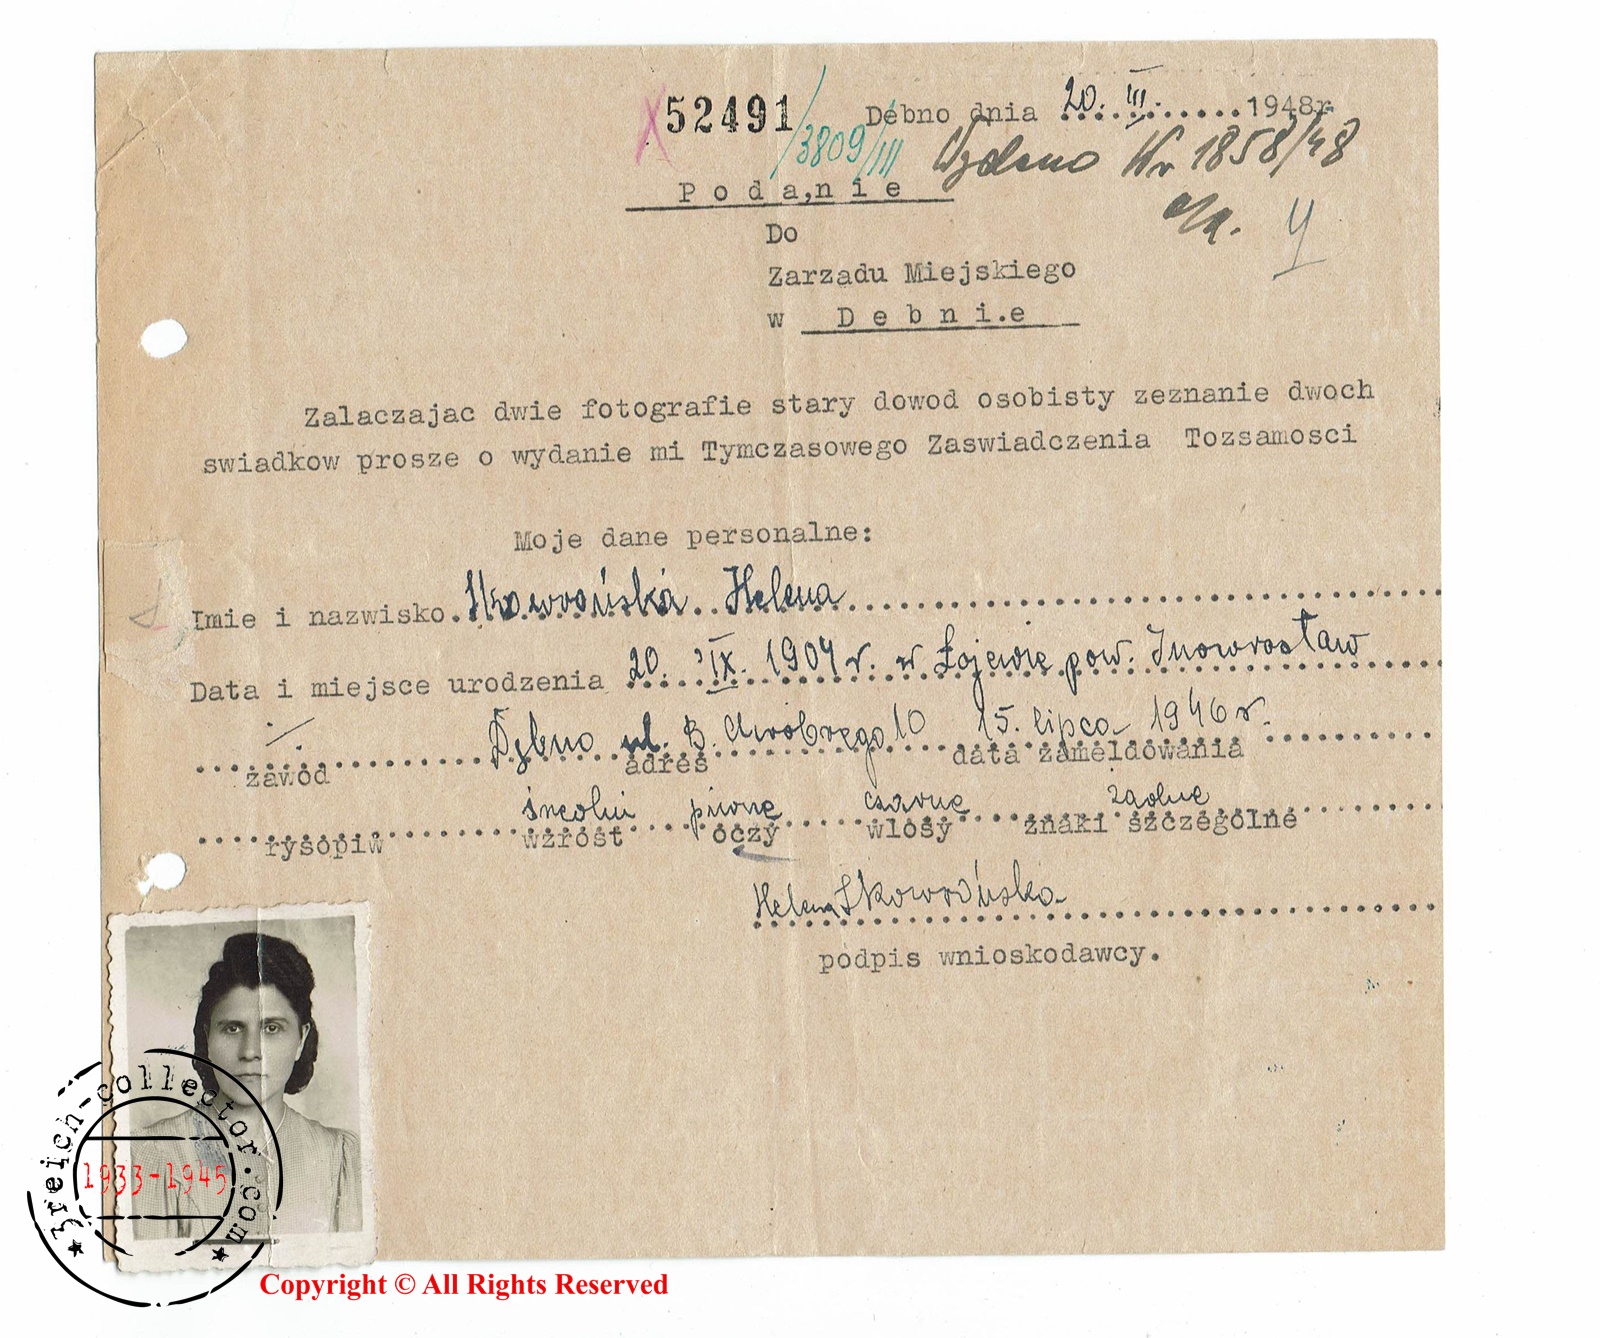 52491 /3809/III Debno dnia 20. III. 1948r
Wydano Nr 1858/48
P o d a,n i e
Do
Zarzadu Miejskiego
w D e b n i.e
Zalaczajac dwie fotografie stary dowod osobisty zeznanie dwoch
swiadkow prosze o wydanie mi Tymczasowego Zaswiadczenia Tozsamosci
Moje dane personalne:
Imie i nazwisko. Skowrońska Helena
Data i miejsce urodzenia 20. IX. 1904 r. w Łojewie pow. Inowrosław
Dębno ul. B. Chrobrego 10 15. lipca 1946 r.
zawód adres data zameldowania
średni piwne czarne żadne
rysopiw wzrost oczy wlosy znaki szczególne
Helena Skowrońska
podpis wnioskodawcy.
3reich-collector.com
1933-1945
Copyright © All Rights Reserved